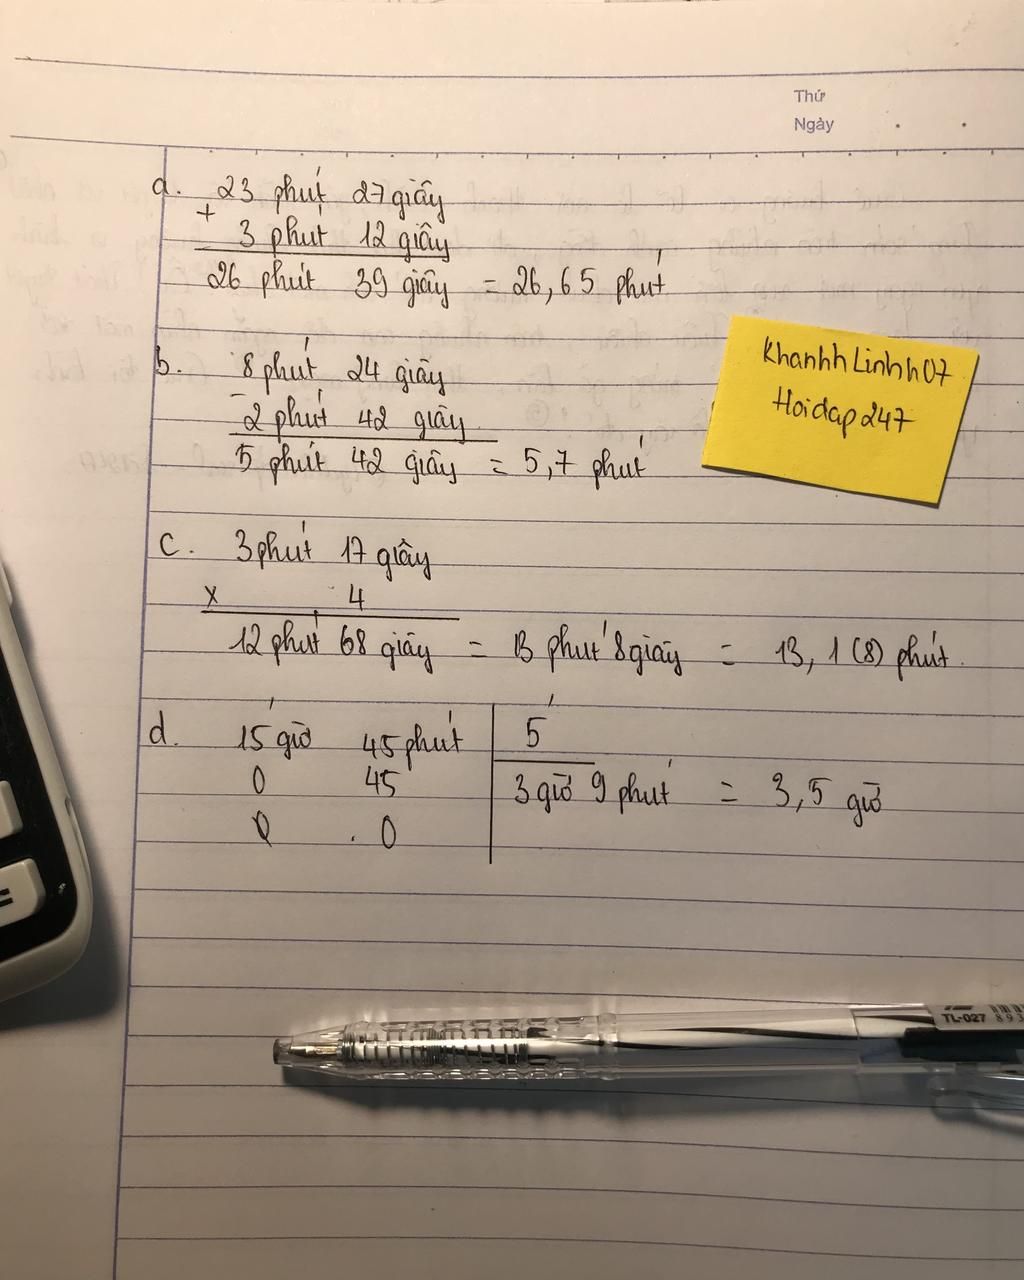 Thứ
Ngày
a. 23 phút 27 giây
+ 3 phút 12 giây
26 phút 39 giây = 26,65 phút
b. 8 phút 24 giây
- 2 phút 42 giây
5 phút 42 giây = 5,7 phút
KhanhhLinhh07
Hoidap247
c. 3 phút 17 giây
x 4
12 phút 68 giây = 13 phút 8 giây = 13,1(8) phút.
d. 15 giờ 45 phút 5
0 45 3 giờ 9 phút = 3,5 giờ
0 0
TL-027
893
=